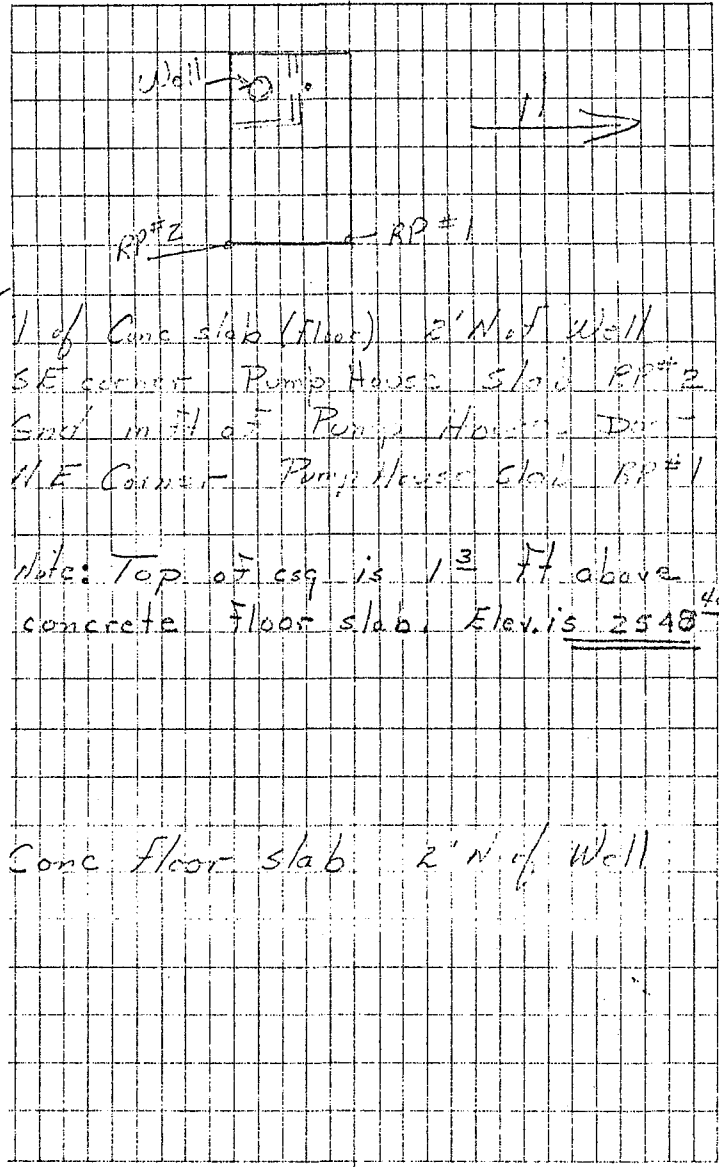 Well
N
RP#2
RP #1
of Conc slab (floor) 2' N of Well
SE corner Pump House Slab RP#2
Gnd in ft of Pump House Door
N E Corner Pump House Slab RP#1
Note: Top of csg is 1 3 ft above
concrete floor slab. Elev. is 2548
Conc floor slab 2' N. of Well